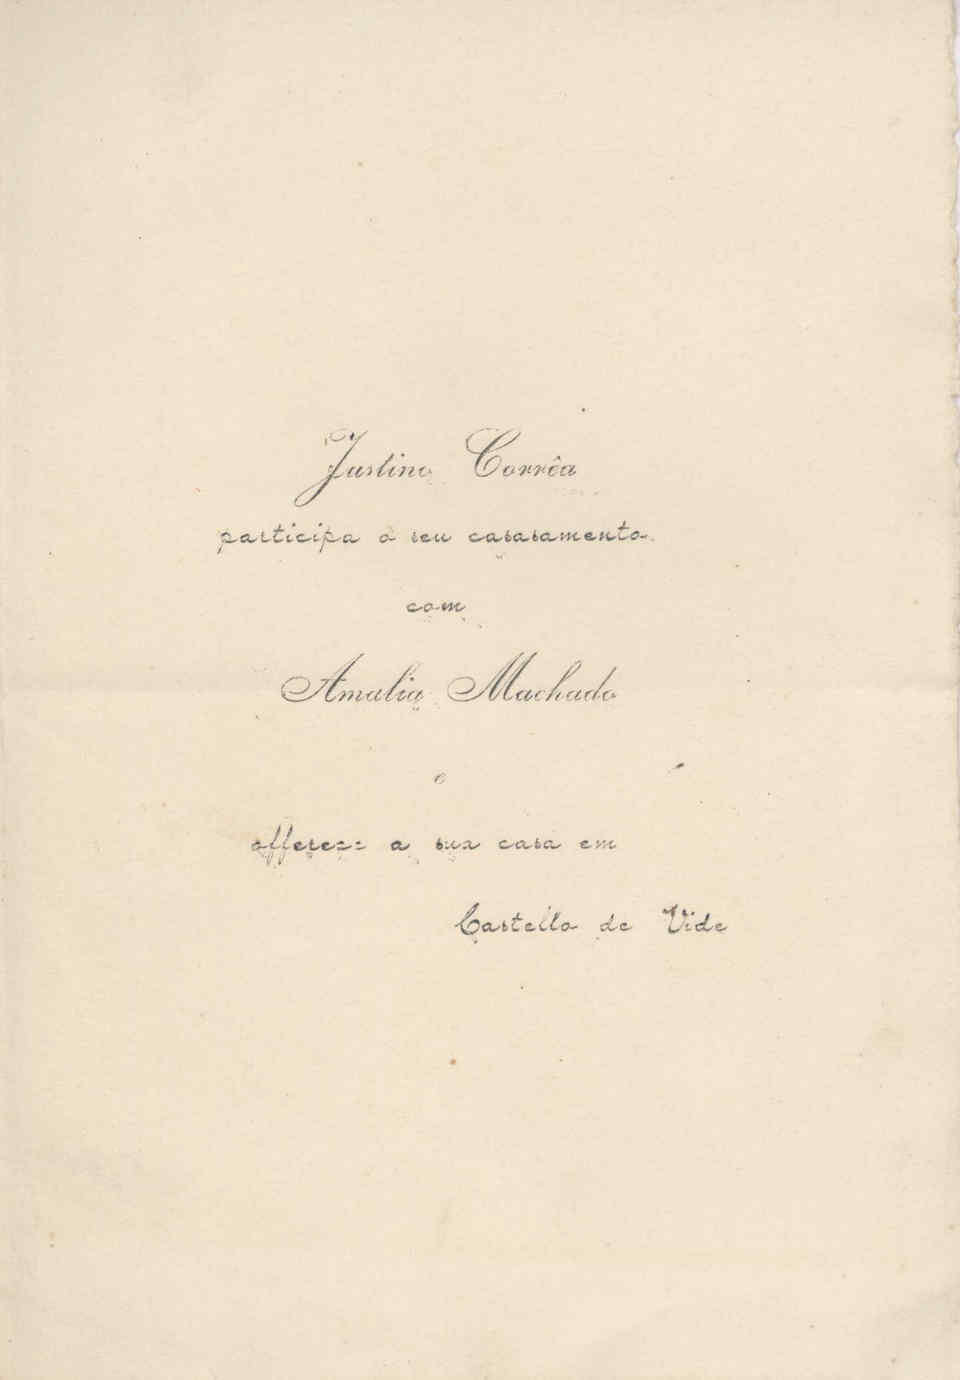 Justino Corrêa
participa o seu casasamento
com
Amalia Machado
e
offerece a sua casa em
Castello de Vide